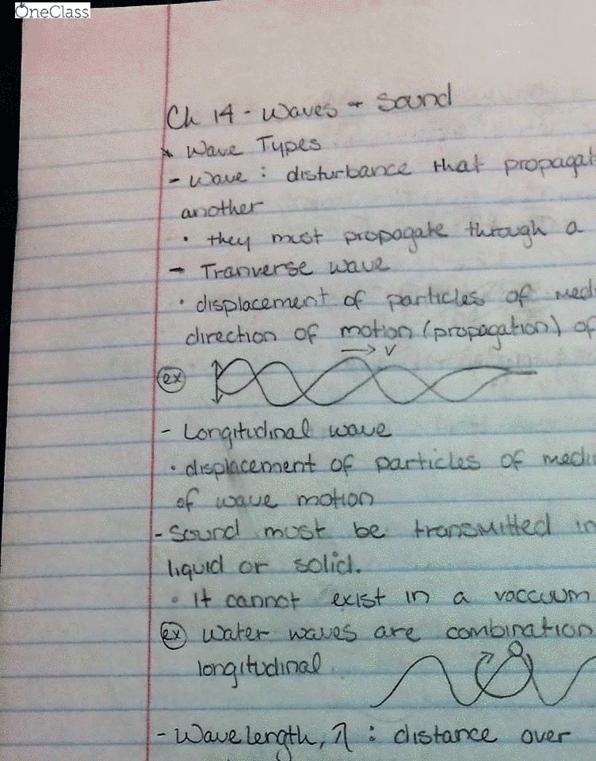 OneClass
Ch 14 - Waves + Sound
* Wave Types
- Wave : disturbance that propagat
another
• they must propagate through a
- Tranverse wave
• displacement of particles of med
direction of motion (propagation) of
→ v
ex
- Longitudinal wave
• displacement of particles of mediu
of wave motion
- Sound must be transmitted in
liquid or solid.
• It cannot exist in a vaccuum
ex Water waves are combination
longitudinal
- Wavelength, λ : distance over